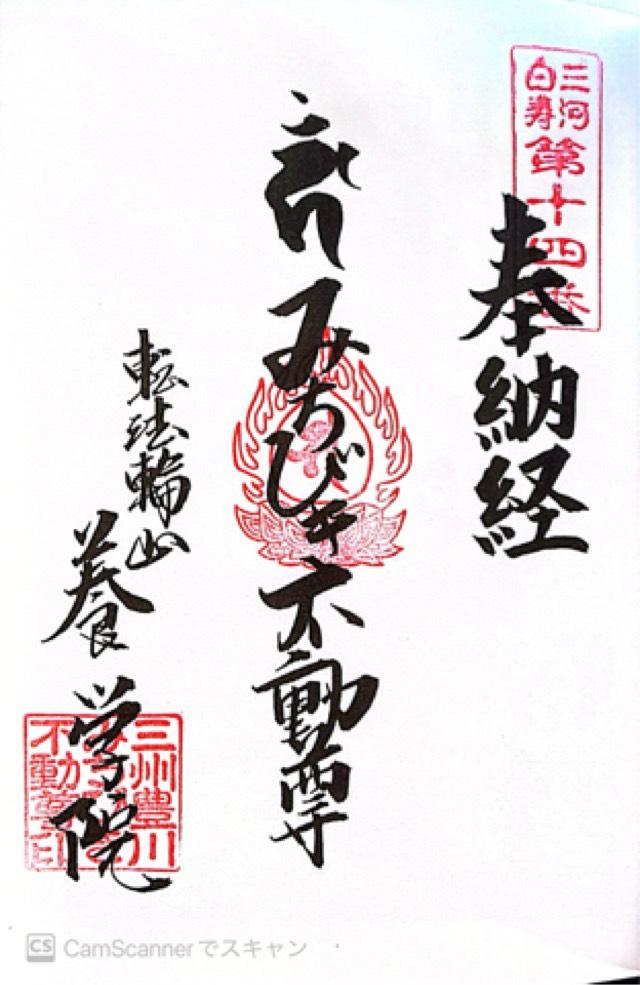 三河
白寿
第十四番
奉納経
みちびき不動尊
転法輪山
養学院
三州豊川
不動尊印
CS CamScannerでスキャン